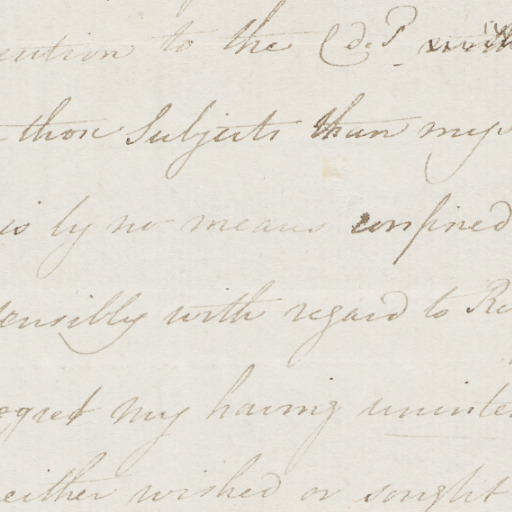 ention to the C. de P. with
those Subjects than mys
is by no means confined
sensibly with regard to Re
egret my having uninte
either wished or sought